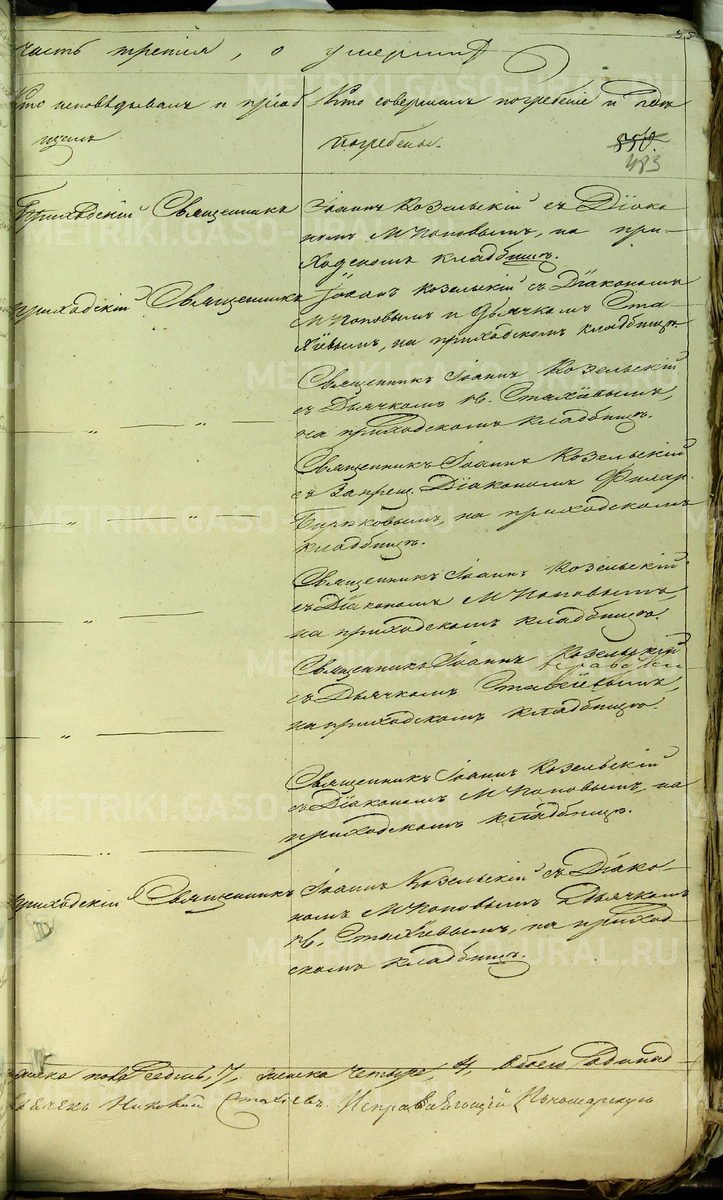 часть третія, о умершихъ
55
Кто исповѣдывалъ и пріоб
щилъ
Кто совершилъ погребеніе и гдѣ
погребены.
850.
483
Приходскій Священникъ
Іоаннъ Козельскій съ Діако
номъ М Поповымъ, на при-
ходскомъ кладбищѣ.
приходскій Священникъ
Іоаннъ Козельскій съ Діакономъ
М Поповымъ и Дьячкомъ Ста-
хіевымъ, на приходскомъ кладбищѣ.
Священникъ Іоаннъ Козельскій
съ Дьячкомъ Стахіевымъ,
на приходскомъ кладбищѣ.
Священникъ Іоаннъ Козельскій
съ Запрещ. Діакономъ Филар.
на приходскомъ
кладбищѣ.
Священникъ Іоаннъ Козельскій
съ Діакономъ М Поповымъ,
на приходскомъ кладбищѣ.
Священникъ Іоаннъ Козельскій
съ Дьячкомъ Стахіевымъ,
на приходскомъ кладбищѣ.
Священникъ Іоаннъ Козельскій
съ Діакономъ М Поповымъ, на
приходскомъ кладбищѣ.
приходскій Священникъ
Іоаннъ Козельскій съ Діако-
номъ М Поповымъ Дьячкомъ
Стахіевымъ, на приход-
скомъ кладбищѣ.
пола седмь, 7, четыре, 4, обоего
Стахіевъ. Исправляющій Пономарскую
METRIKI.GASO-URAL.RU